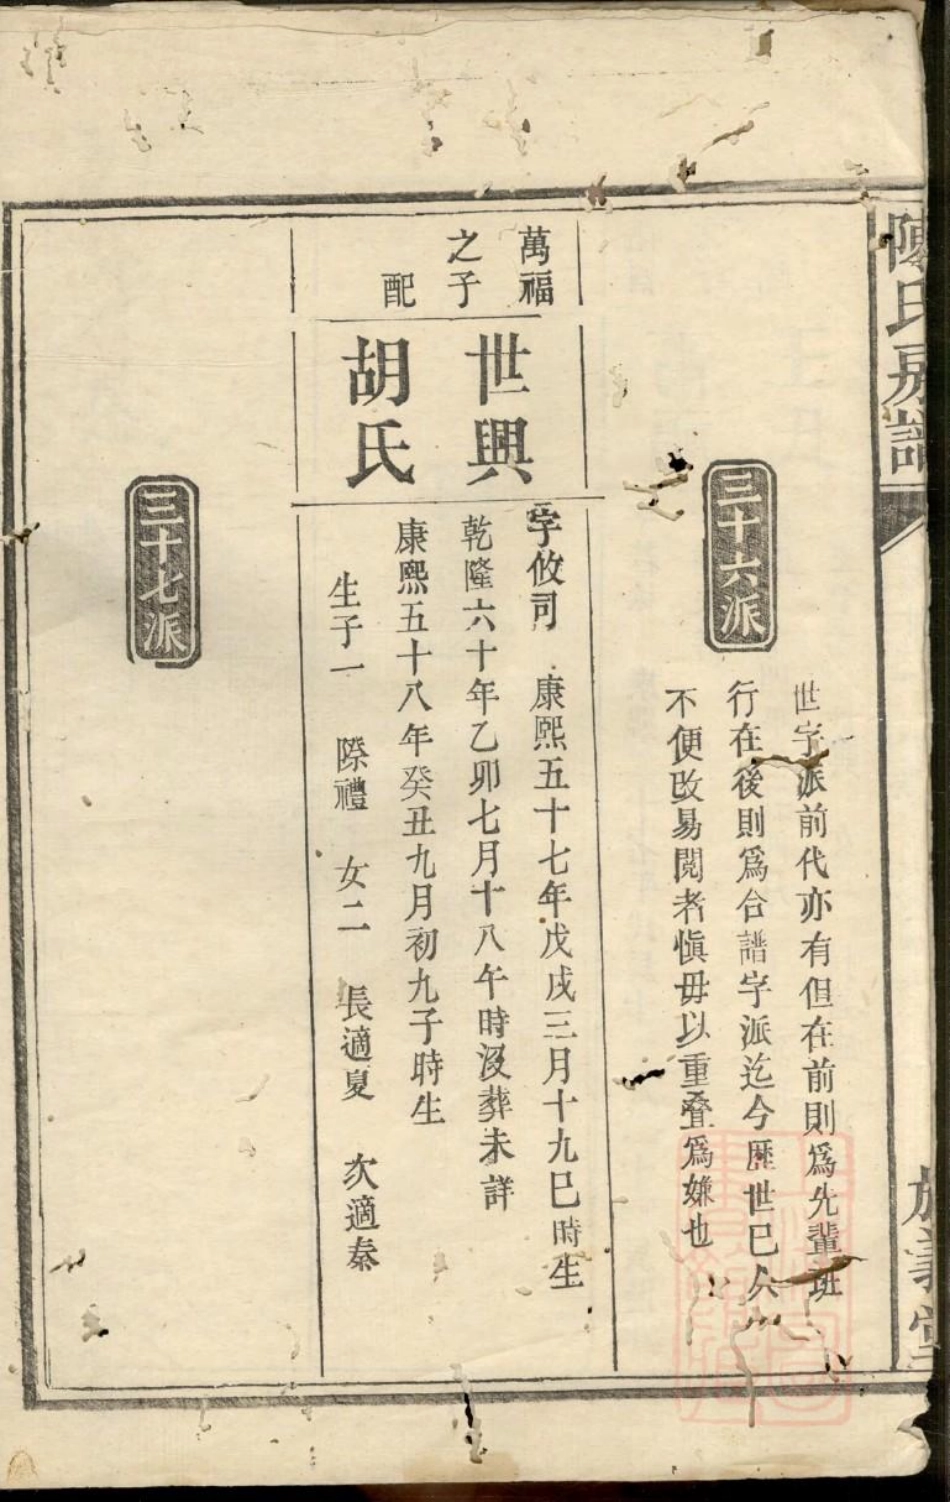 陳氏房譜
義堂
三十六派
世字派前代亦有但在前則爲先輩班
行在後則爲合譜字派迄今歷世已久
不便改易閱者慎毋以重叠爲嫌也
萬福
之子
世興
字攸司 康熙五十七年戊戌三月十九巳時生
乾隆六十年乙卯七月十八午時没葬未詳
配
胡氏
康熙五十八年癸丑九月初九子時生
生子一 際禮 女二 長適夏 次適秦
三十七派